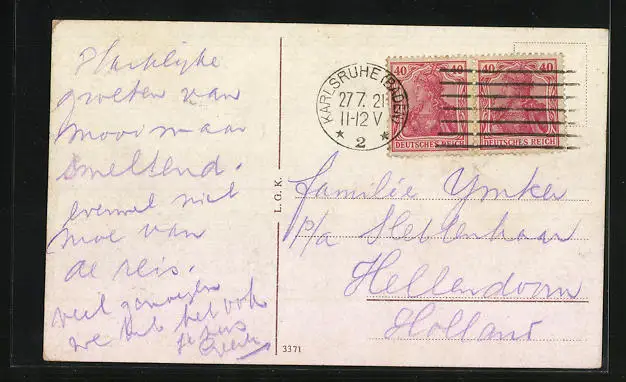 Hartelijke
groeten van
mooi maar
smeltend.
evenwel niet
moe van
de reis.
veel genoegen
het ook
L.G.K.
3371
KARLSRUHE (BADEN)
27 7. 21
11-12 V
* 2 *
40 40
DEUTSCHES REICH
40 40
DEUTSCHES REICH
Familie Ymker
p/a
Hellendoorn
Holland